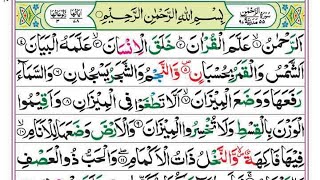 بِسْمِ اللهِ الرَّحْمٰنِ الرَّحِيْمِ
اَلرَّحْمٰنُ ۝١ عَلَّمَ الْقُرْاٰنَ ۝٢ خَلَقَ الْاِنْسَانَ ۝٣ عَلَّمَهُ الْبَيَانَ ۝٤
اَلشَّمْسُ وَالْقَمَرُ بِحُسْبَانٍ ۝٥ وَّالنَّجْمُ وَالشَّجَرُ يَسْجُدٰنِ ۝٦ وَالسَّمَآءَ
رَفَعَهَا وَوَضَعَ الْمِيْزَانَ ۝٧ اَلَّا تَطْغَوْا فِى الْمِيْزَانِ ۝٨ وَاَقِيْمُوا
الْوَزْنَ بِالْقِسْطِ وَلَا تُخْسِرُوا الْمِيْزَانَ ۝٩ وَالْاَرْضَ وَضَعَهَا لِلْاَنَامِ ۝١٠
فِيْهَا فَاكِهَةٌ وَّالنَّخْلُ ذَاتُ الْاَكْمَامِ ۝١١ وَالْحَبُّ ذُو الْعَصْفِ